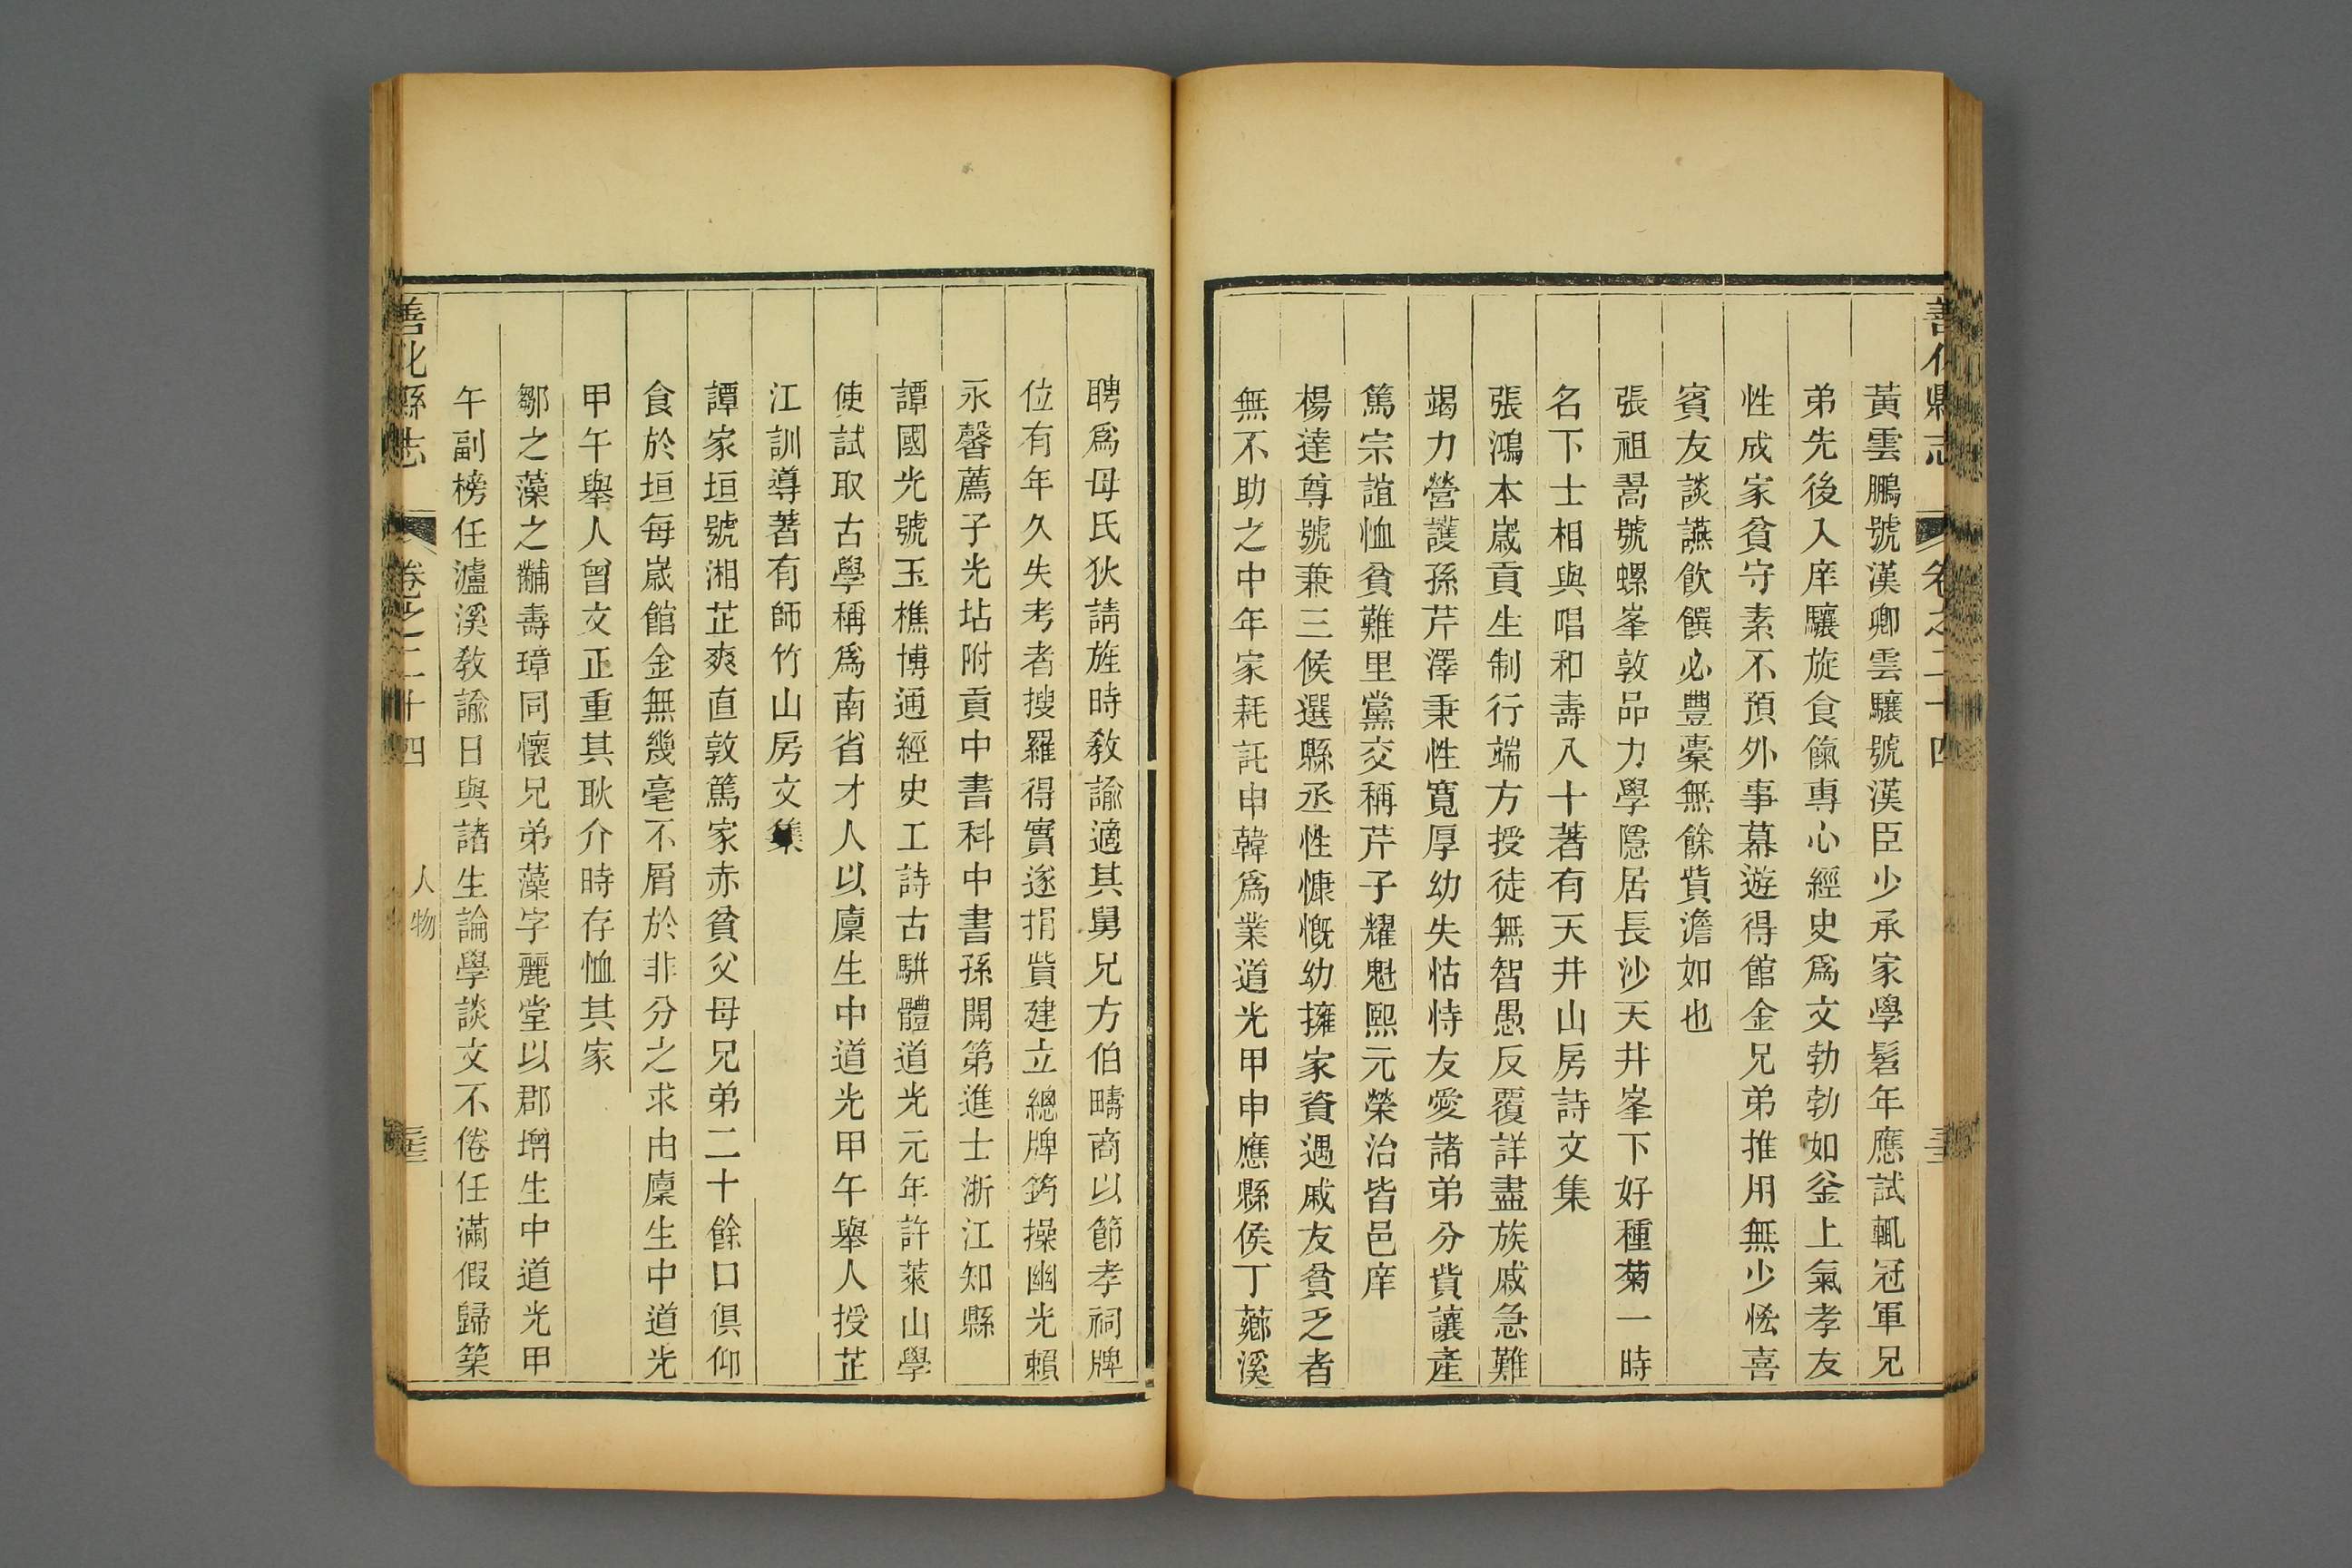 善化縣志
卷之二十四
黃雲鵬號漢卿雲驤號漢臣少承家學髫年應試輒冠軍兄
弟先後入庠驤旋食餼專心經史爲文勃勃如釡上氣孝友
性成家貧守素不預外事幕遊得館金兄弟推用無少恡喜
賓友談讌飮饌必豐橐無餘貲澹如也
張祖翯號螺峯敦品力學隱居長沙天井峯下好種菊一時
名下士相與唱和壽八十著有天井山房詩文集
張鴻本歲貢生制行端方授徒無智愚反覆詳盡族戚急難
竭力營護孫芹澤秉性寬厚幼失怙恃友愛諸弟分貲讓產
篤宗誼恤貧難里黨交稱芹子耀魁熙元榮治皆邑庠
楊達尊號兼三候選縣丞性慷慨幼擁家資遇戚友貧乏者
無不助之中年家耗託申韓爲業道光甲申應縣侯丁薌溪
聘爲母氏狄請旌時敎諭適其舅兄方伯疇商以節孝祠牌
位有年久失考者搜羅得實遂捐貲建立總牌筠操幽光賴
永馨薦子光坫附貢中書科中書孫開第進士浙江知縣
譚國光號玉樵博通經史工詩古駢體道光元年許萊山學
使試取古學稱爲南省才人以廩生中道光甲午舉人授芷
江訓導著有師竹山房文集
譚家垣號湘芷爽直敦篤家赤貧父母兄弟二十餘口俱仰
食於垣每歲館金無幾毫不屑於非分之求由廩生中道光
甲午舉人曾文正重其耿介時存恤其家
鄒之藻之黼壽璋同懷兄弟藻字麗堂以郡增生中道光甲
午副榜任瀘溪敎諭日與諸生論學談文不倦任滿假歸築
善化縣志
卷之二十四
人物